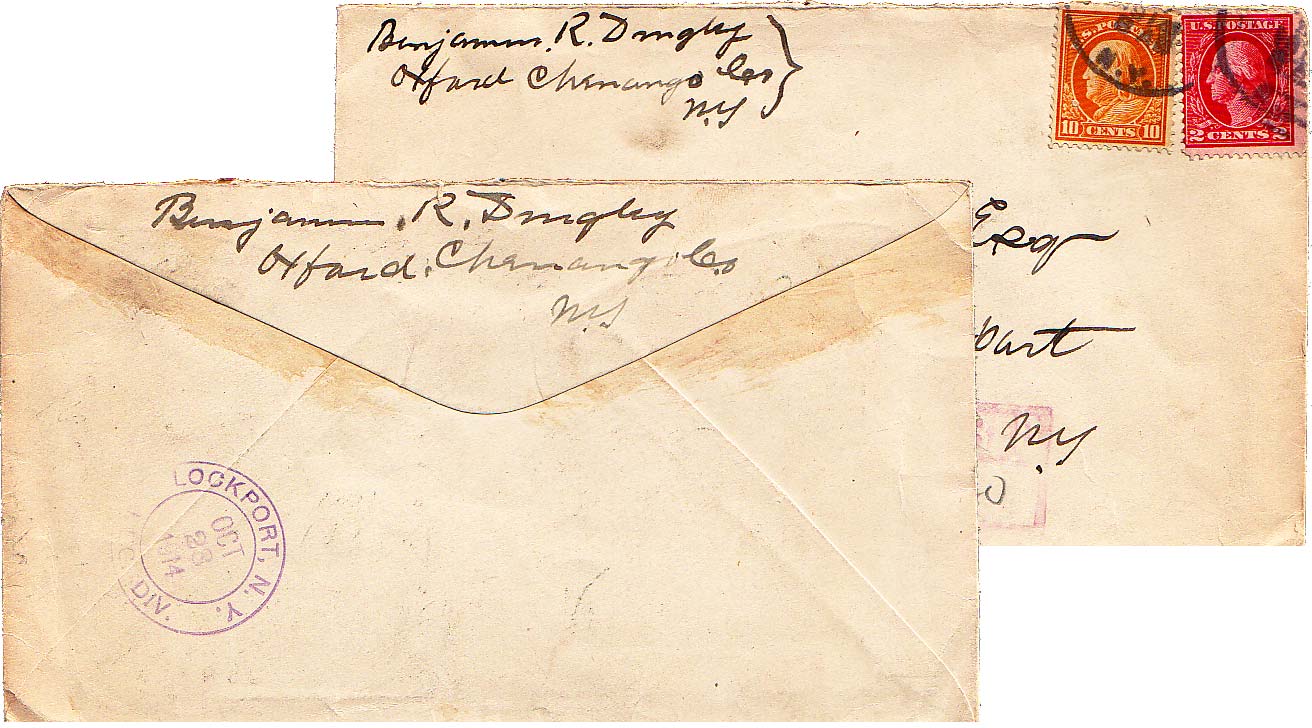 Benjamin. R. Dingley
Oxford Chenango Co
N.Y
N.Y.
U.S. POSTAGE
10 CENTS 10
U.S. POSTAGE
2 CENTS 2
Esq
port
N.Y
Benjamin. R. Dingley
Oxford. Chenango Co
N.Y
LOCKPORT, N.Y.
OCT
23
1914
DIV.